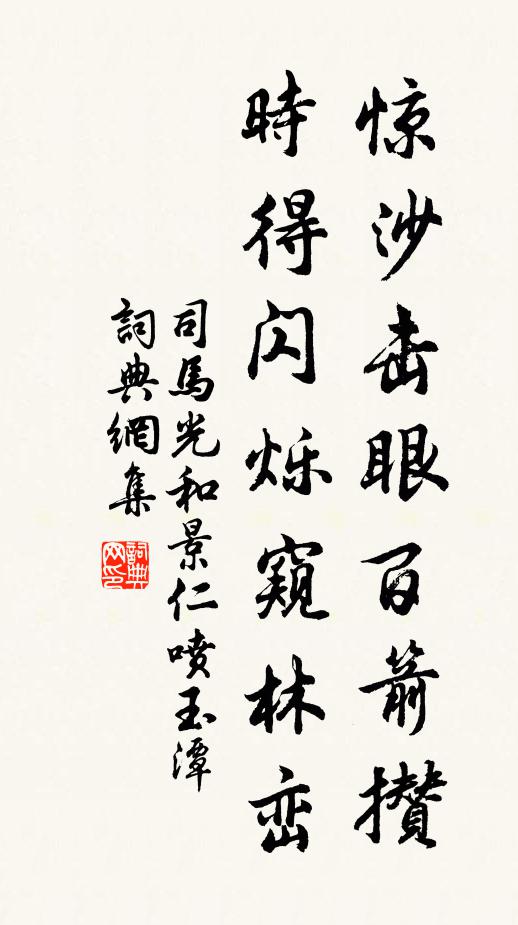 惊沙击眼百箭攒
時得闪烁窺林峦
司馬光和景仁喷玉潭
詞典網集
詞典网印